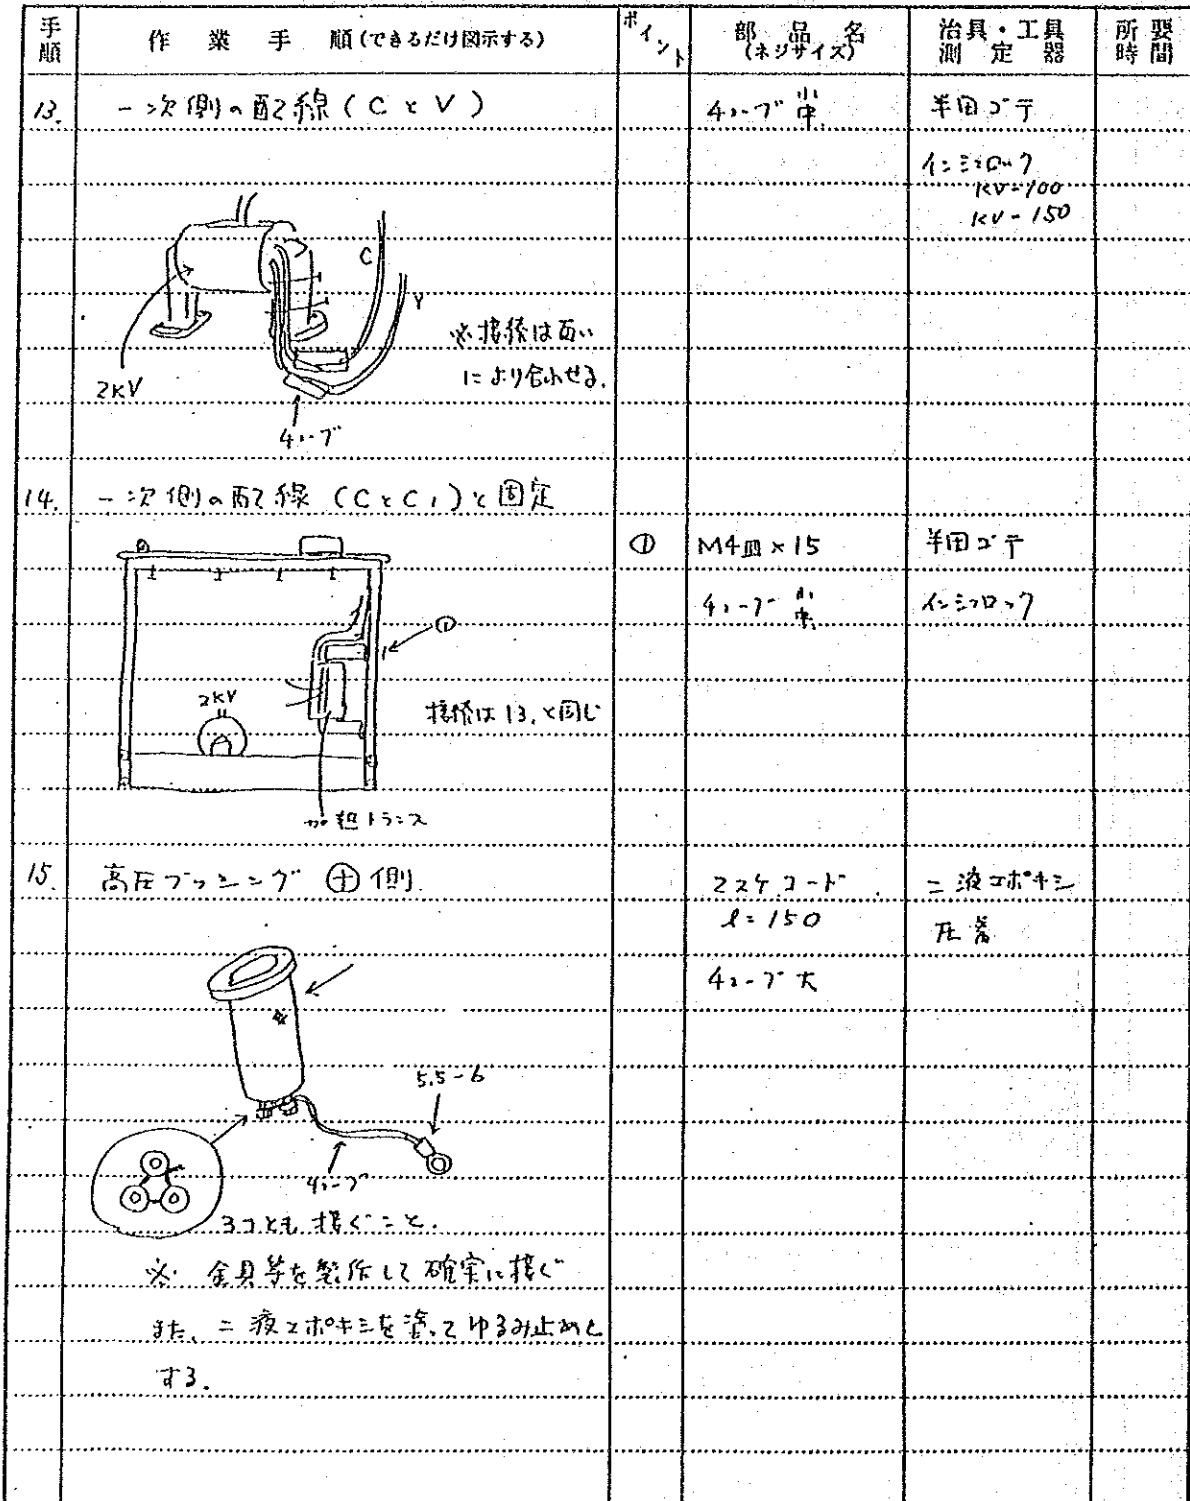 手順 作業手順(できるだけ図示する) ポイント 部品名(ネジサイズ) 治具・工具測定器 所要時間
13. 一次側の配線(CとV) チューブ 小 半田ゴテ
中
インシュロック
KV-100
KV-150
C
V
2KV
※接続は互い
により合わせる.
チューブ
14. 一次側の配線(CとC1)と固定
① M4皿×15 半田ゴテ
チューブ 小 インシュロック
中
①
2KV
接続は13.と同じ
トランス
15. 高圧ブッシング ⊕側. コード 二液エポキシ
l=150 圧着
チューブ大
5.5-6
チューブ
3コとも接ぐこと.
※ 金具等を製作して確実に接ぐ
また、二液エポキシを塗ってゆるみ止めと
する.